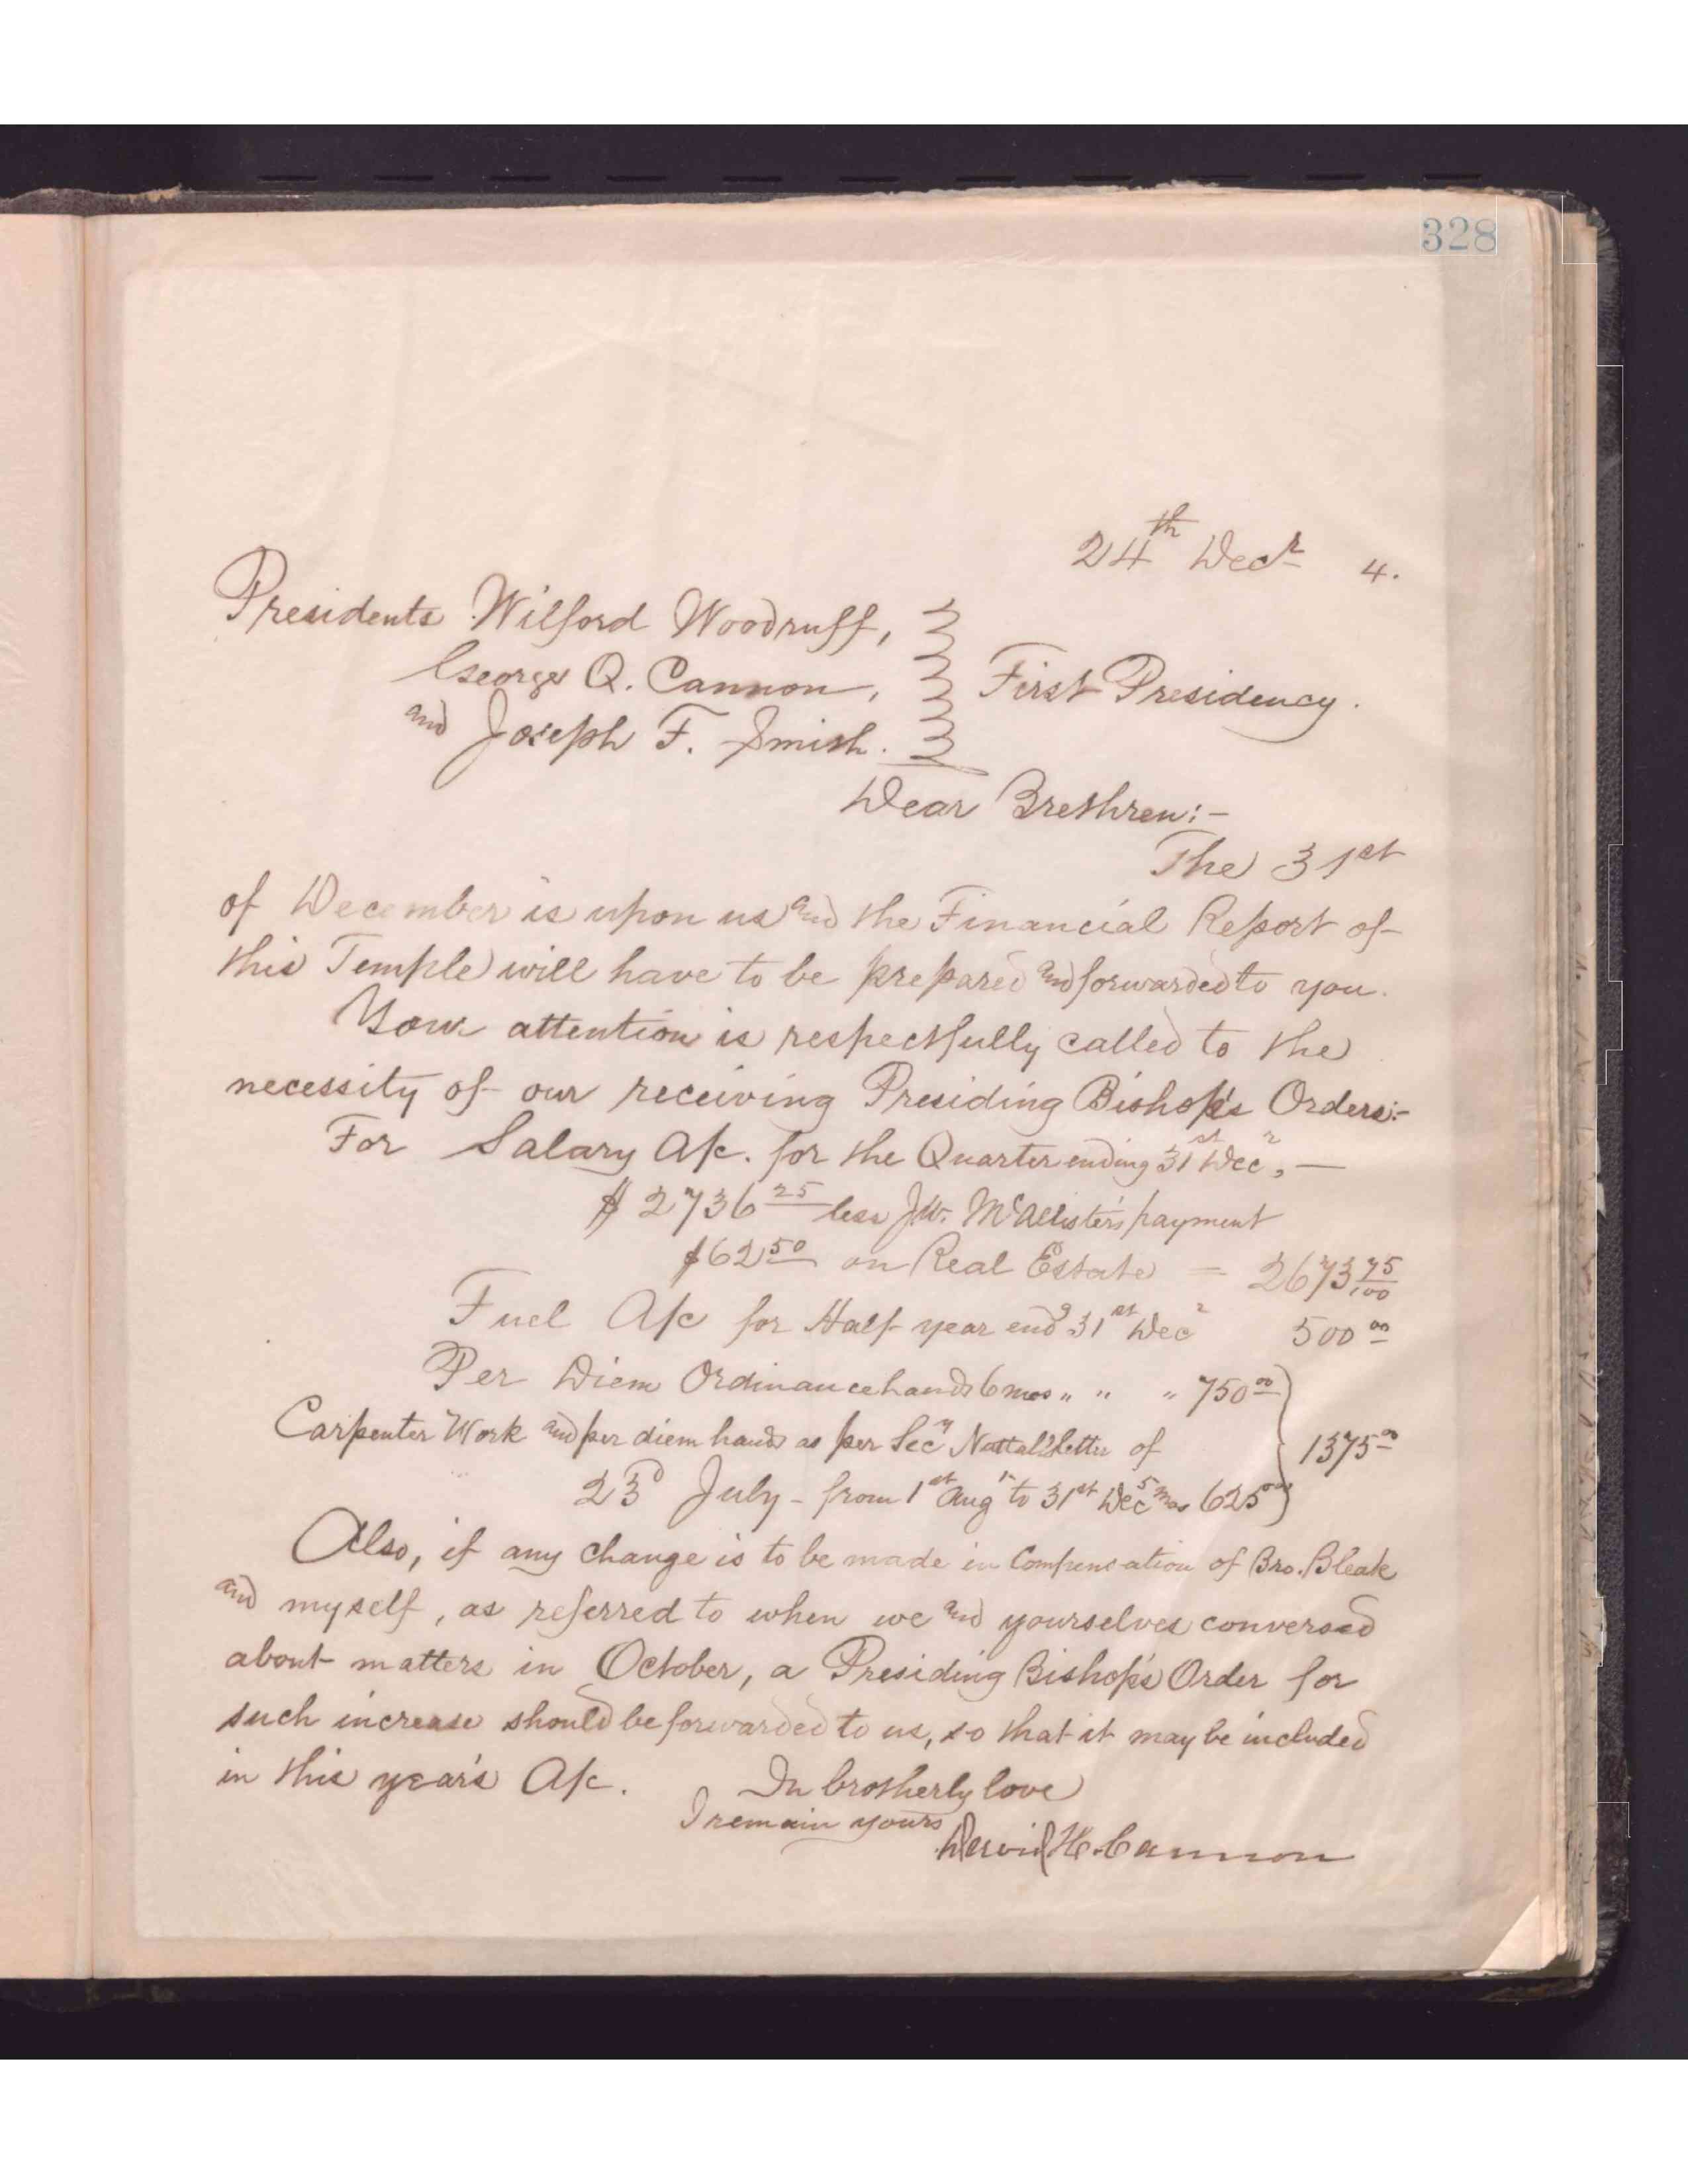 328
24th Decr 4.
Presidents Wilford Woodruff,
George Q. Cannon, First Presidency.
and Joseph F. Smith.
Dear Brethren:-
The 31st
of December is upon us and the Financial Report of
this Temple will have to be prepared and forwarded to you.
Your attention is respectfully called to the
necessity of our receiving Presiding Bishop's Orders:-
For Salary A/c. for the Quarter ending 31st Decr, —
$2736 25 less J.W. McAllister's payment
$62 50 on Real Estate = 2673 75/100
Fuel A/c for Half year endg 31st Decr 500 00
Per Diem Ordinance hands 6 mos " " " 750 00
Carpenter Work and per diem hands as per Secy Nuttall's letter of 1375 00
23d July - from 1st Aug to 31st Dec 5 mos 625 00
Also, if any change is to be made in Compensation of Bro. Bleak
and myself, as referred to when we and yourselves conversed
about matters in October, a Presiding Bishop's Order for
such increase should be forwarded to us, so that it may be included
in this year's A/c. In brotherly love
I remain yours
David H. Cannon